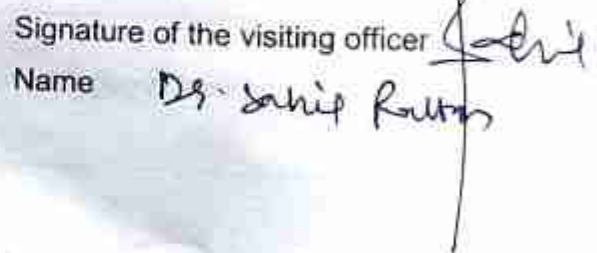 Signature of the visiting officer
Name Dr. Sahil